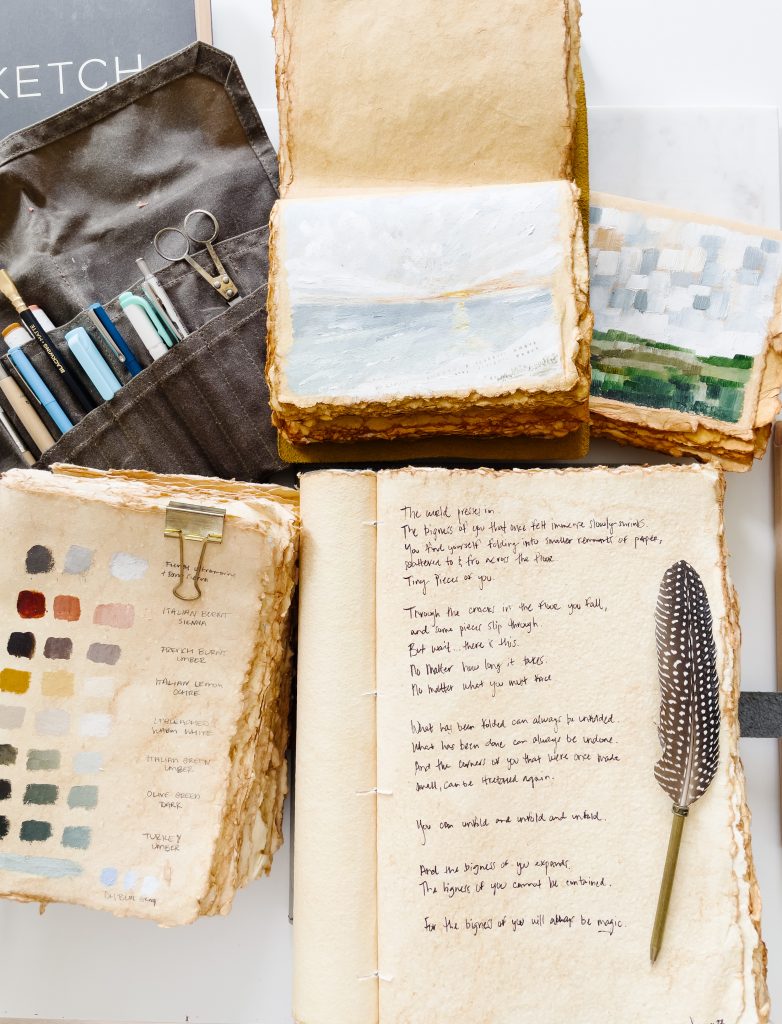 KETCH
BLACKWING MATTE
ITALIAN BURNT
SIENNA
FRENCH BURNT
UMBER
ITALIAN LEMON
OCHRE
WARM WHITE
ITALIAN GREEN
UMBER
OLIVE GREEN
DARK
TURKEY
UMBER
The world presses in.
The bigness of you that once felt immense slowly shrinks.
You find yourself folding into smaller remnants of paper,
scattered to & fro across the floor
Tiny Pieces of you.
Through the cracks in the floor you fall,
and some pieces slip through.
But wait...there is this.
No matter how long it takes.
No matter what you must
What has been folded can always be unfolded.
What has been done can always be undone.
And the corners of you that were once made
small, can be again.
You can unfold and unfold and unfold.
And the bigness of you expands.
The bigness of you cannot be contained.
For the bigness of you will always be magic.